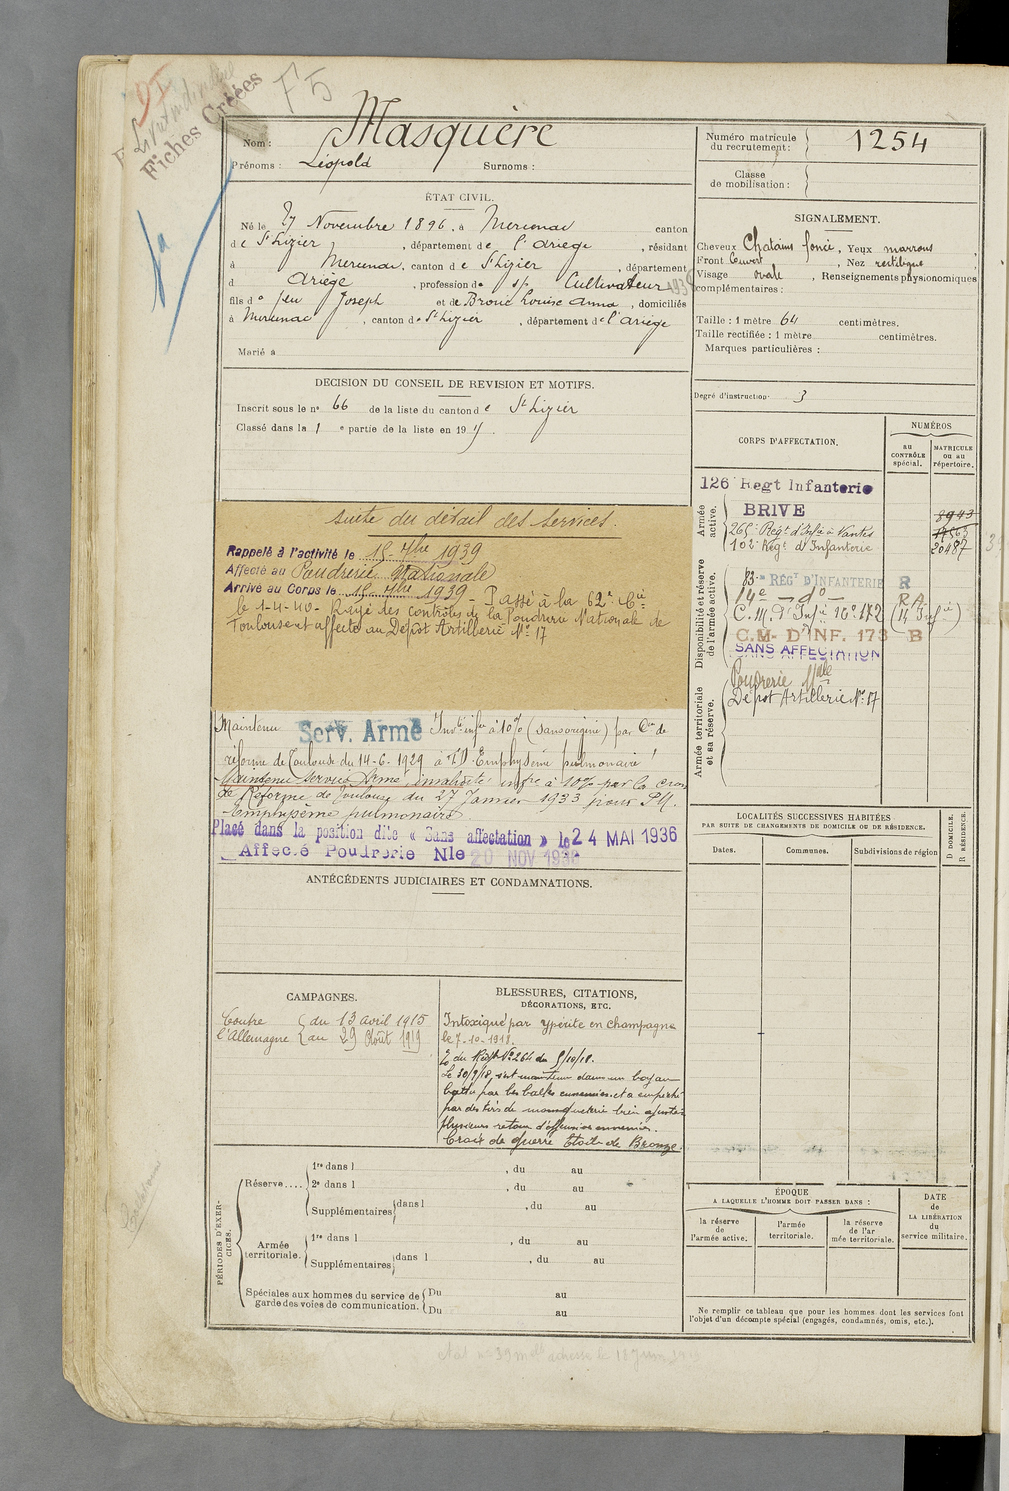 F5
Fiches Créées
Nom : Masquère
Prénoms : Léopold Surnoms :
Numéro matricule du recrutement : 1254
Classe de mobilisation :
ÉTAT CIVIL.
Né le 27 Novembre 1896, à Mercenac canton
de St Lizier, département de l'Ariège, résidant
à Mercenac, canton de St Lizier, département
d Ariège, profession de Cultivateur
fils de feu Joseph et de Broué Louise Anna, domiciliés
à Mercenac, canton de St Lizier, département de l'Ariège
Marié à
SIGNALEMENT.
Cheveux Chatains foncé, Yeux marrons
Front Couvert, Nez rectiligne
Visage ovale, Renseignements physionomiques
complémentaires :
Taille : 1 mètre 64 centimètres.
Taille rectifiée : 1 mètre centimètres.
Marques particulières :
Degré d'instruction 3
DECISION DU CONSEIL DE REVISION ET MOTIFS.
Inscrit sous le n° 66 de la liste du canton de St Lizier
Classé dans la 1e partie de la liste en 19
suite du détail des services.
Rappelé à l'activité le 15 7bre 1939
Affecté au Poudrerie Nationale
Arrivé au Corps le 15 7bre 1939 - Passé à la 62e Cie
le 1-4-40 - Rayé des contrôles de la Poudrerie Nationale de
Toulouse et affecté au Dépôt Artillerie No 17
Maintenu Serv. Armé Inv. infre à 10% (sans origine) par Con de
réforme de Toulouse du 14-6-1929 Emphysème pulmonaire
Maintenu service Armé, invalidité infre à 10% par la Cion
de Réforme de Toulouse du 27 Janvier 1933 pour
Emphysème pulmonaire.
Placé dans la position dite « Sans affectation » le 24 MAI 1936
Affecté Poudrerie Nle 20 NOV 193
CORPS D'AFFECTATION.
NUMÉROS
au CONTRÔLE spécial.
MATRICULE ou au répertoire.
Armée active.
126 Regt Infanterie
BRIVE 8943
265e Regt d'Infie à Nantes
102e Regt d'Infanterie 20487
Disponibilité et réserve de l'armée active.
83e RÉGT D'INFANTERIE R
14e - do - RA
C.M. d'Infie 16e 172 (14 Infie)
C.M- D'INF. 173 B
SANS AFFECTATION
Armée territoriale et sa réserve.
Poudrerie Nlle
Dépôt Artillerie No 17
LOCALITÉS SUCCESSIVES HABITÉES
PAR SUITE DE CHANGEMENTS DE DOMICILE OU DE RÉSIDENCE.
Dates. Communes. Subdivisions de région D DOMICILE. R RÉSIDENCE.
ANTÉCÉDENTS JUDICIAIRES ET CONDAMNATIONS.
CAMPAGNES.
Contre l'Allemagne du 13 avril 1915
au 29 Août 1919
BLESSURES, CITATIONS,
DÉCORATIONS, ETC.
Intoxiqué par ypérite en Champagne
le 7-10-1918.
du Régt No 264 du 5/10/18.
Le 30/9/18, s'est maintenu dans un boyau
battu par les balles ennemies et a empêché
par des tirs de mousqueterie bien ajustés
plusieurs retours d'offensives ennemies.
Croix de guerre Étoile de Bronze.
PÉRIODES D'EXERCICES.
Réserve....
1re dans l , du au
2e dans l , du au
Supplémentaires dans l , du au
Armée territoriale.
1re dans l , du au
Supplémentaires dans l , du au
Spéciales aux hommes du service de garde des voies de communication.
Du au
Du au
ÉPOQUE
A LAQUELLE L'HOMME DOIT PASSER DANS :
la réserve de l'armée active.
l'armée territoriale.
la réserve de l'armée territoriale.
DATE de LA LIBÉRATION du service militaire.
Ne remplir ce tableau que pour les hommes dont les services font
l'objet d'un décompte spécial (engagés, condamnés, omis, etc.).